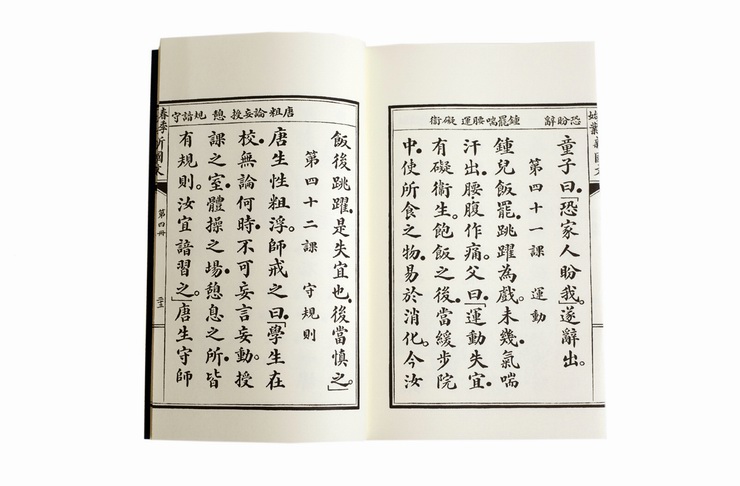 恐盼辭 鍾罷喘腰運 礙衛
童子曰。「恐家人盼我。」遂辭出。
第四十一課 運動
鍾兒飯罷。跳躍為戲。未幾。氣喘
汗出。腰腹作痛。父曰。「運動失宜。
有礙衞生。飽飯之後。當緩步院
中。使所食之物。易於消化。今汝
唐粗論妄授 憩 規諳守
飯後跳躍。是失宜也。後當慎之。」
第四十二課 守規則
唐生性粗浮。師戒之曰。「學生在
校。無論何時。不可妄言妄動。授
課之室。體操之場。憩息之所。皆
有規則。汝宜諳習之。」唐生守師
第四冊